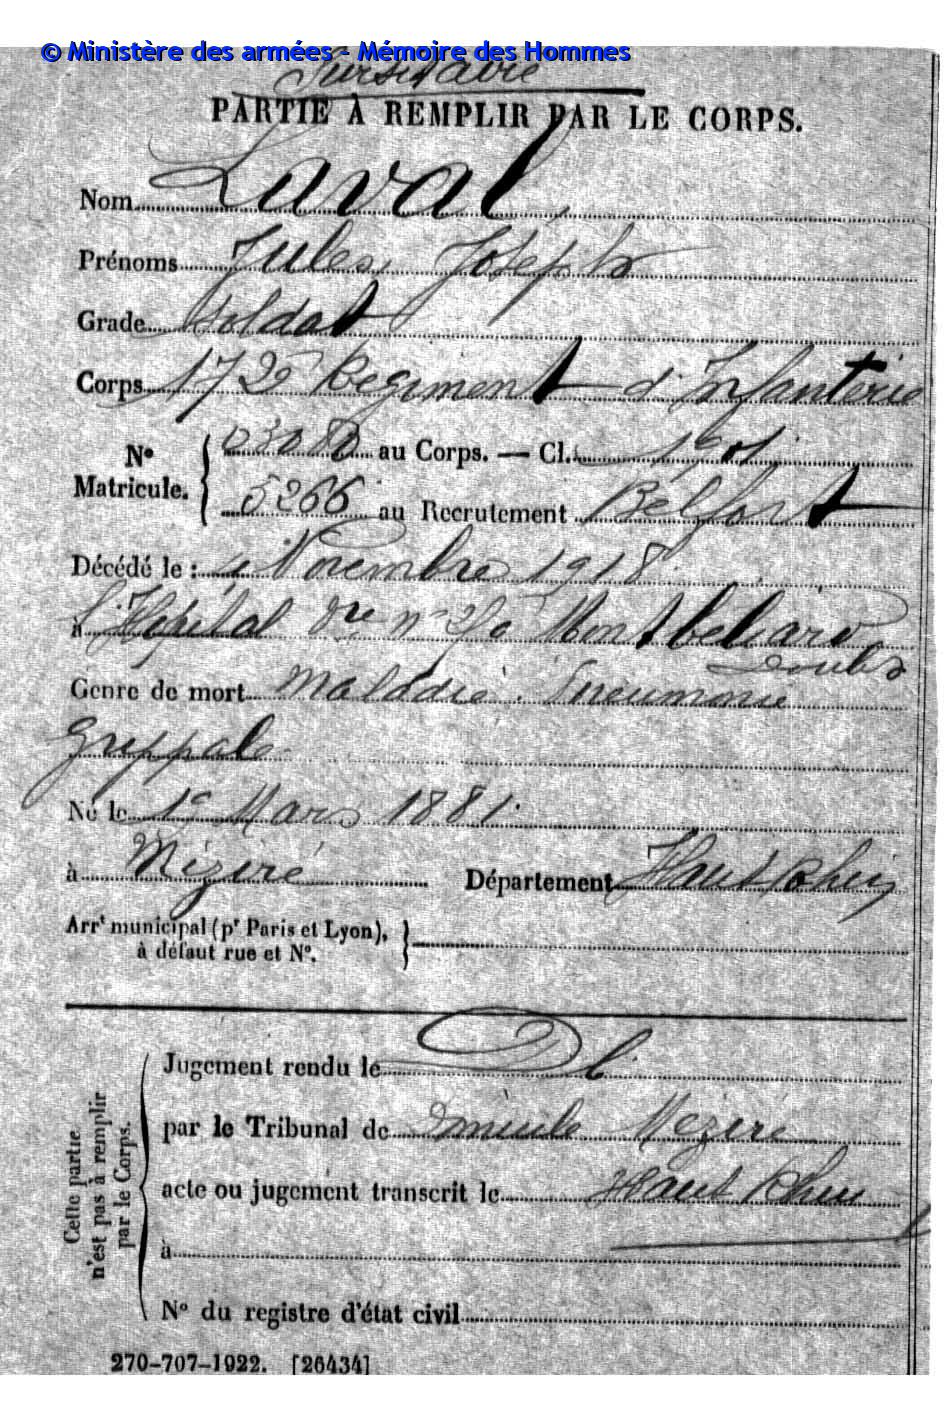 © Ministère des armées - Mémoire des Hommes
Sursitaire
PARTIE À REMPLIR PAR LE CORPS.
Nom Laval
Prénoms Jules Joseph
Grade Soldat
Corps 172e Régiment d'Infanterie
No Matricule. 03080 au Corps. — Cl. 1901
5266 au Recrutement Belfort
Décédé le : 4 Novembre 1918
à l'Hôpital Montbeliard
Doubs
Genre de mort Maladie. Pneumonie
Grippale
Né le 1er Mars 1881.
à Méziré Département Haut Rhin
Arrt municipal (pr Paris et Lyon),
à défaut rue et No.
Cette partie n'est pas à remplir par le Corps.
Jugement rendu le
par le Tribunal de Méziré
acte ou jugement transcrit le Haut Rhin
à
No du registre d'état civil
270-707-1922. [26434]